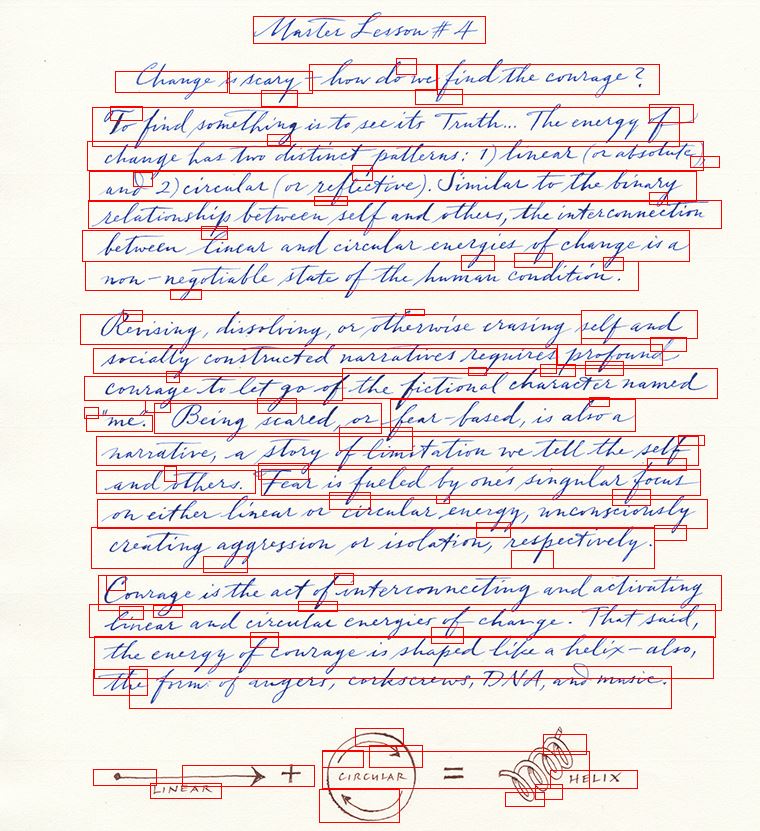 Master Lesson # 4
Change is scary – how do we find the courage?
To find something is to see its Truth... The energy of
change has two distinct patterns: 1) linear (or absolute),
and 2) circular (or reflective). Similar to the binary
relationship between self and others, the interconnection
between linear and circular energies of change is a
non-negotiable state of the human condition.
Revising, dissolving, or otherwise erasing self and
socially constructed narratives requires profound
courage to let go of the fictional character named
"me." Being scared, or fear-based, is also a
narrative, a story of limitation we tell the self
and others. Fear is fueled by one's singular focus
on either linear or circular energy, unconsciously
creating aggression or isolation, respectively.
Courage is the act of interconnecting and activating
linear and circular energies of change. That said,
the energy of courage is shaped like a helix – also,
the form of augers, corkscrews, DNA, and music.
LINEAR + CIRCULAR = HELIX